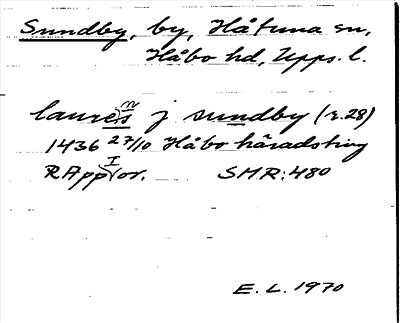 Sundby, by, Håtuna sn,
Håbo hd, Upps. l.
laurens j sundby (r. 28)
1436 27/10 Håbo häradsting
RApp I or. SMR: 480
E. L. 1970